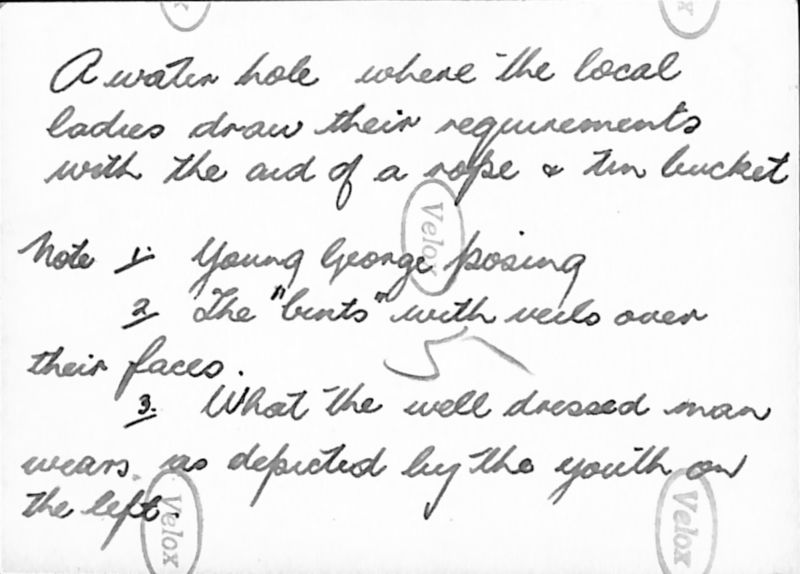 A water hole where the local
ladies draw their requirements
with the aid of a rope & tin bucket
Note 1. Young George posing
2 The "bints" with veils over
their faces.
3. What the well dressed man
wears. as depicted by the youth on
the left.
Velox
Velox
Velox